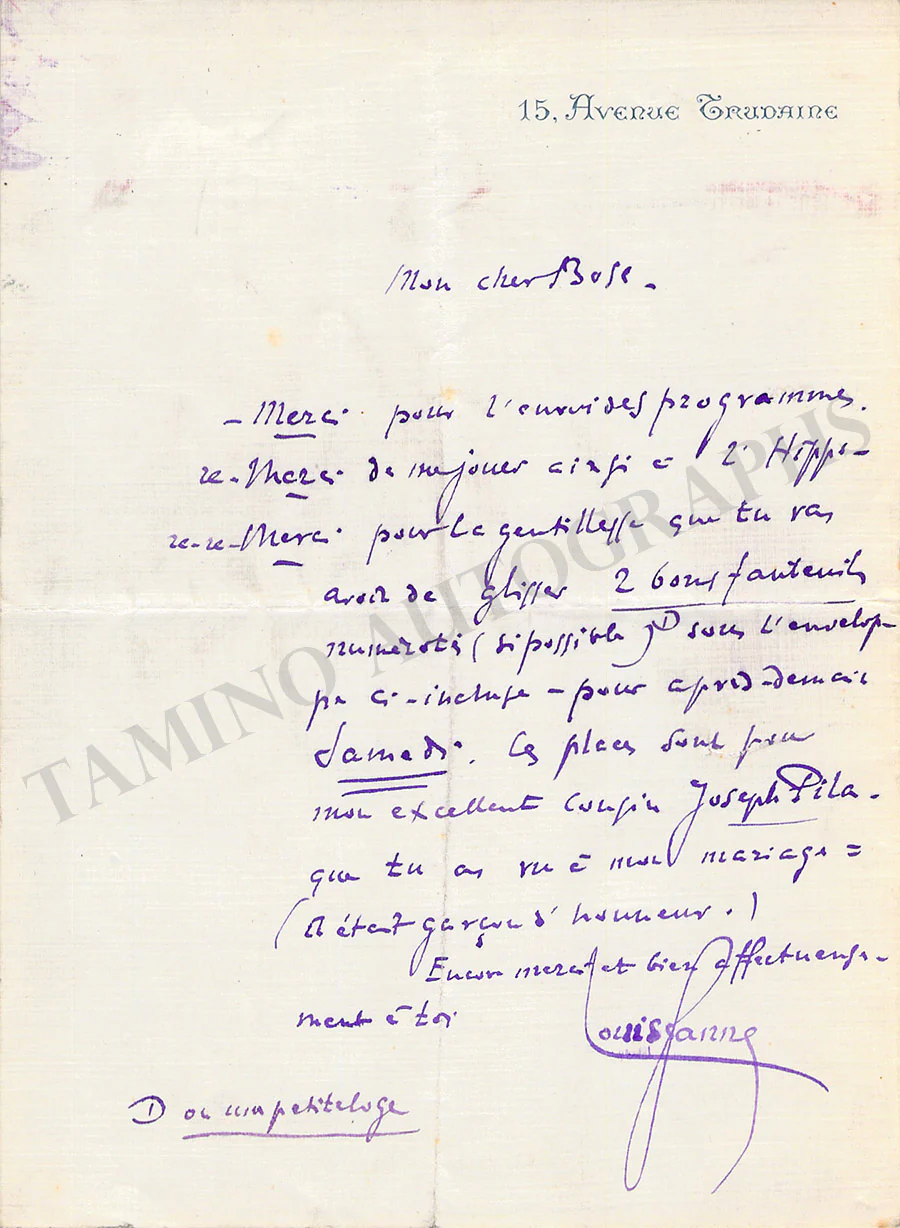 15, Avenue Trudaine
Mon cher Bosc.
- Merci pour l'envoi des programmes.
re-Merci de me jouer ainsi à l'Hippo-
re-re-Merci pour la gentillesse que tu vas
avoir de glisser 2 bons fauteuils
numérotés (si possible) D sous l'envelop-
pe ci-incluse - pour après-demain
Samedi. Ces places sont pour
mon excellent cousin Joseph Pila -
que tu as vu à mon mariage =
(il était garçon d'honneur.)
Encore merci et bien affectueuse-
ment à toi
Louis Ganne
D ou une petite loge
TAMINO AUTOGRAPHS